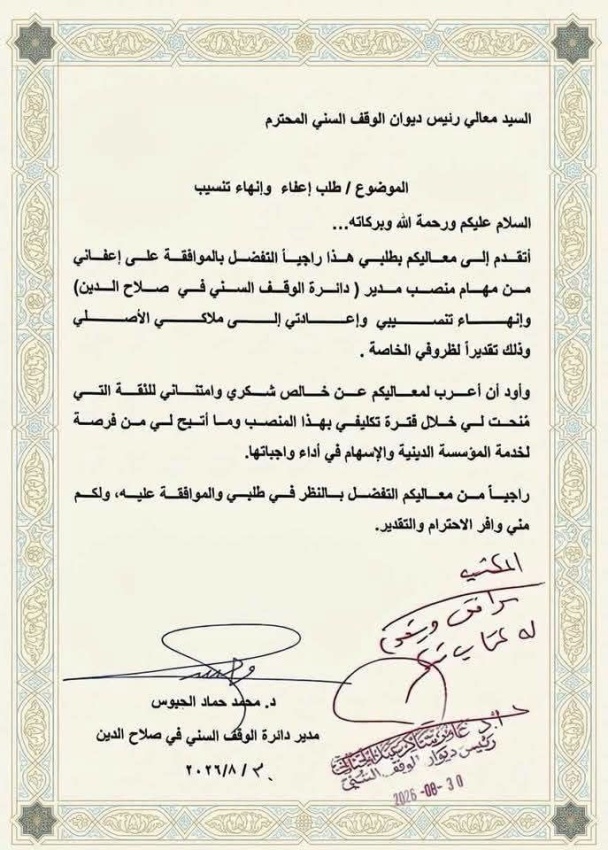 السيد معالي رئيس ديوان الوقف السني المحترم
الموضوع / طلب إعفاء وإنهاء تنسيب
السلام عليكم ورحمة الله وبركاته...
أتقدم إلى معاليكم بطلبي هذا راجياً التفضل بالموافقة على إعفائي
من مهام منصب مدير ( دائرة الوقف السني في صلاح الدين)
وإنهاء تنصيبي وإعادتي إلى ملاكي الأصلي
وذلك تقديراً لظروفي الخاصة .
وأود أن أعرب لمعاليكم عن خالص شكري وامتناني للثقة التي
مُنحت لي خلال فترة تكليفي بهذا المنصب وما أتيح لي من فرصة
لخدمة المؤسسة الدينية والإسهام في أداء واجباتها.
راجياً من معاليكم التفضل بالنظر في طلبي والموافقة عليه، ولكم
مني وافر الاحترام والتقدير.
المكتب
له كتاب
د. محمد حماد الجبوس
مدير دائرة الوقف السني في صلاح الدين
٢٠٢٦/٨/٣٠
أ.د. عامر شاكر
رئيس ديوان الوقف السني
2026-08-30